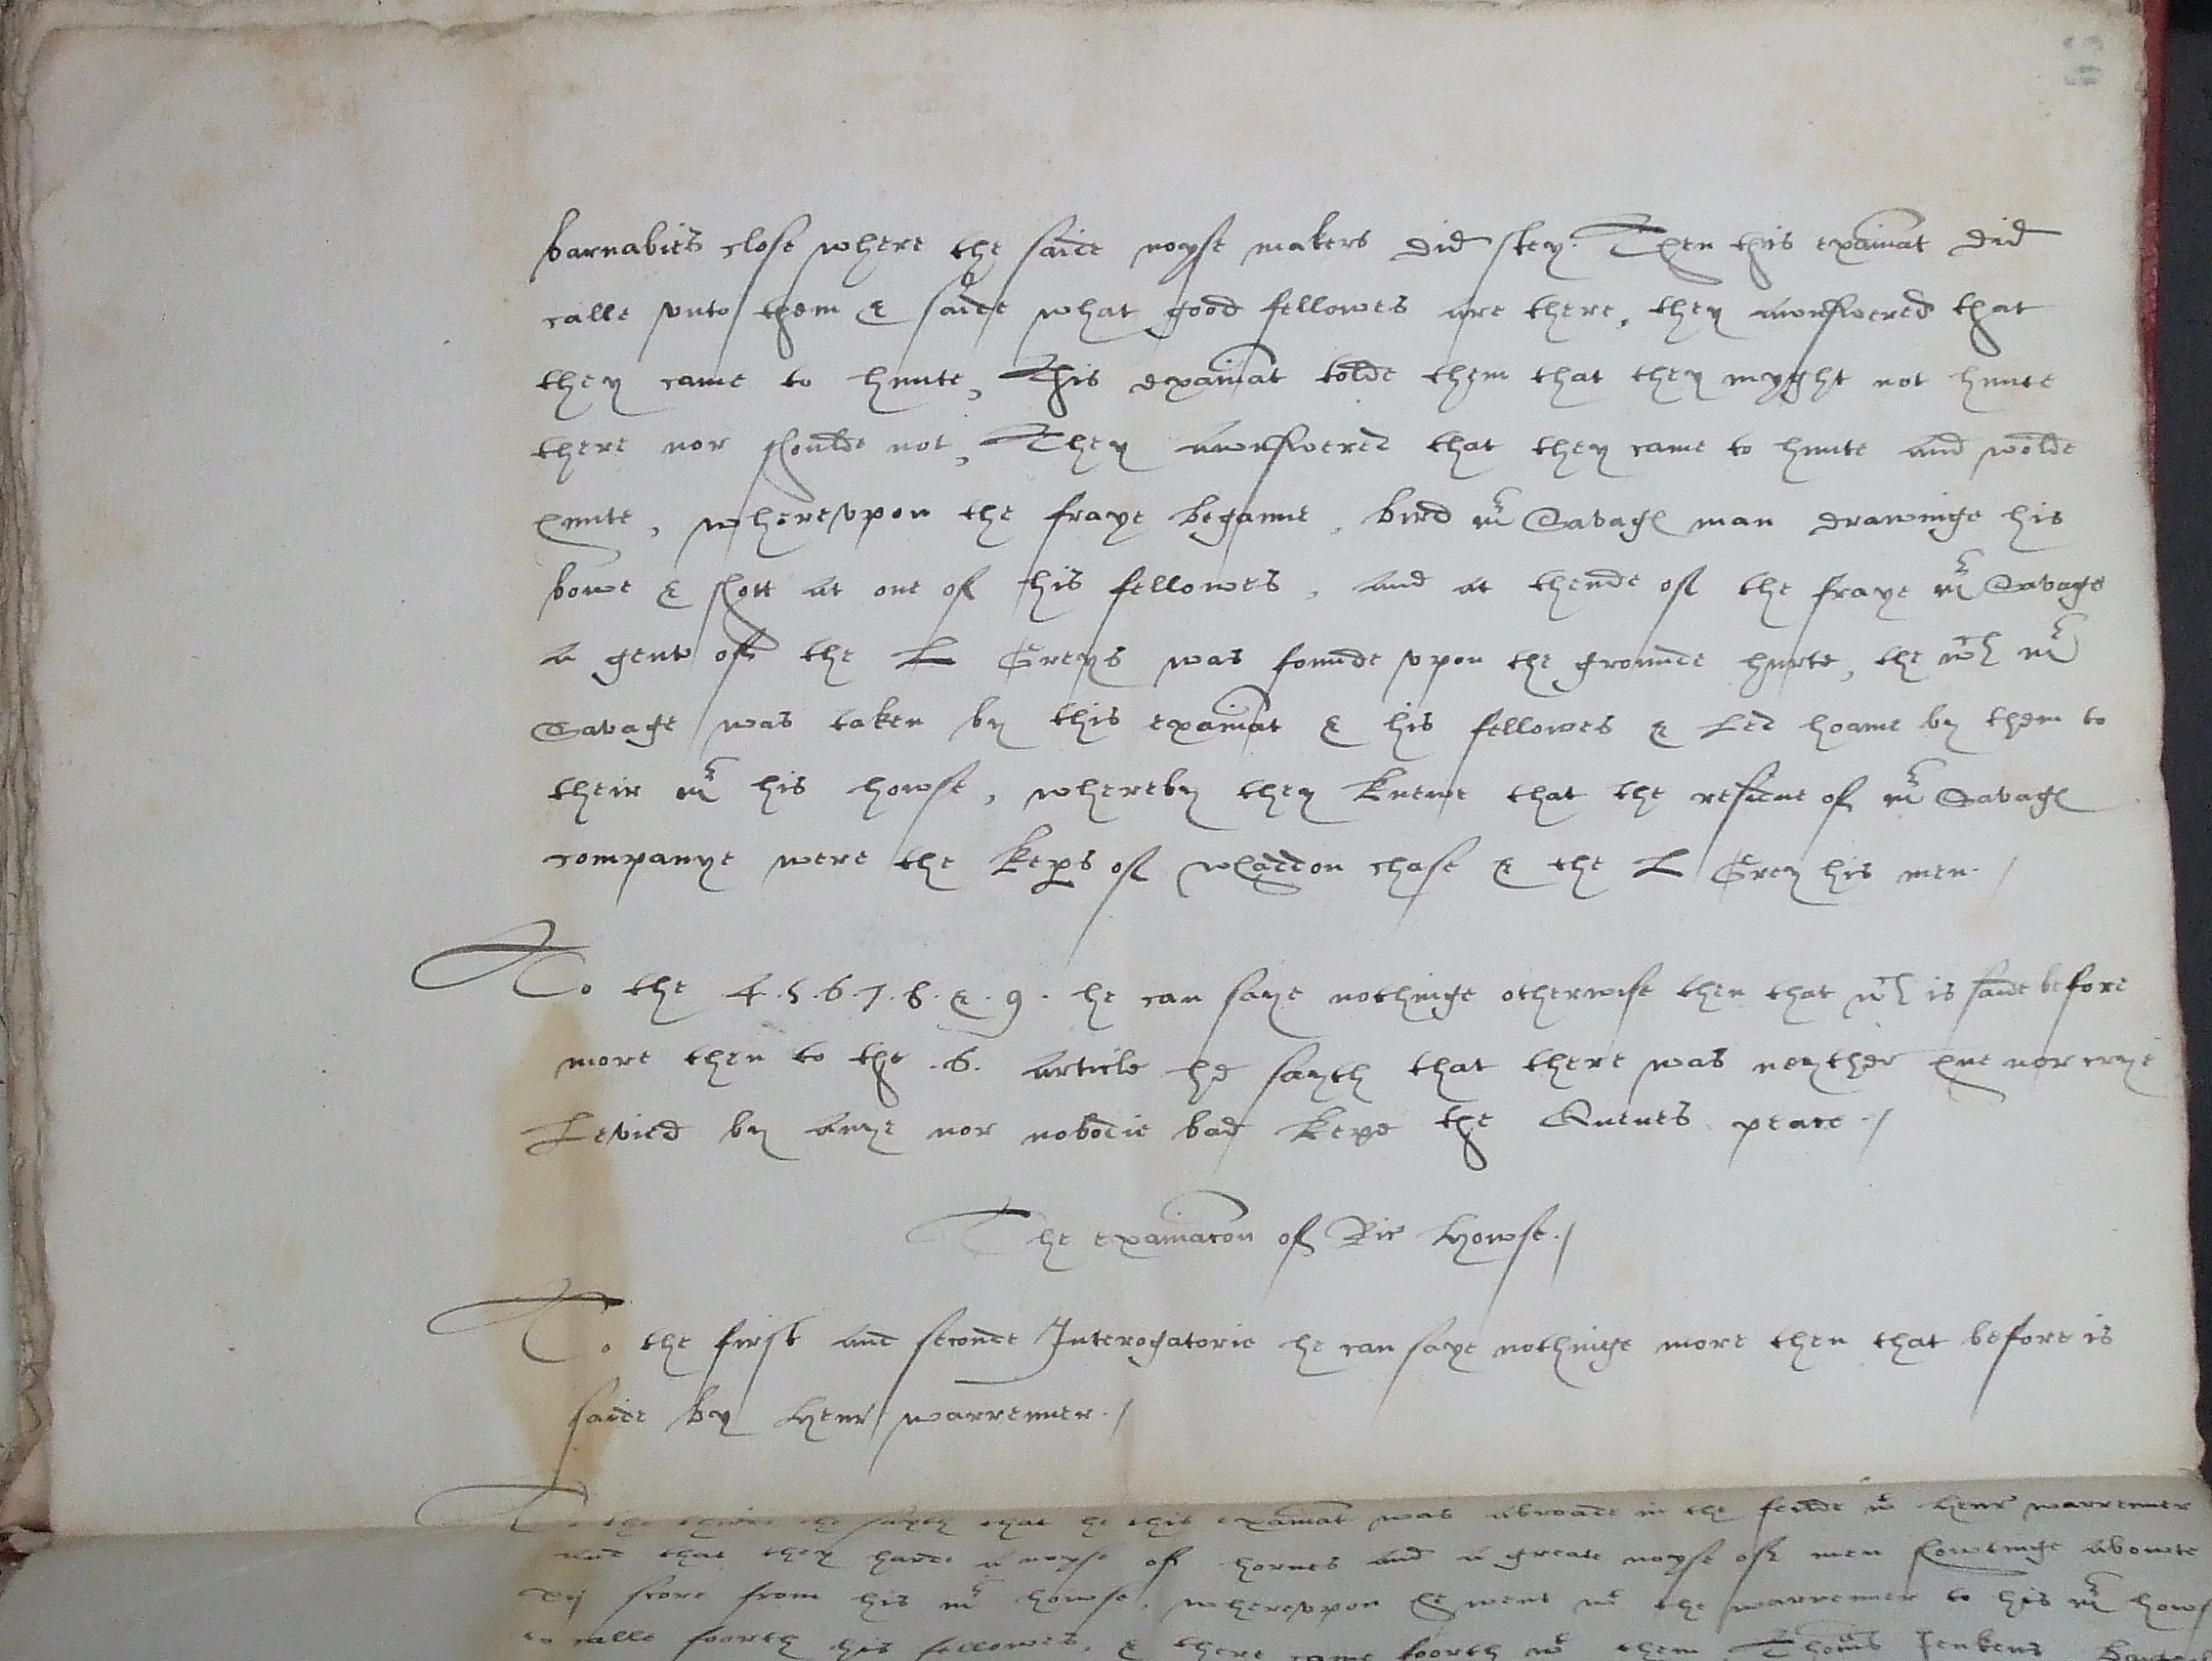 barnabies close where the saide noyse makers did stey. Then this examat did
calle vnto them & saide what good fellowes are there, they aunswered that
they came to hunte, This examat tolde them that they myght not hunte
there nor shoulde not, They aunswered that they came to hunte and wolde
hunte, wherevpon the fraye beganne, bird mr Savage man drawinge his
bowe & shott at one of his fellowes, and at thende of the fraye mr Savage
a gent of the L Greys was founde vpon the grounde hurte, the wch mr
Savage was taken by this examat & his fellowes & led hoame by them to
their mr his howse, whereby they knewe that the residue of mr Savage
companye were the kepers of whaddon chase & the L Grey his men./
To the 4.5.6.7.8.&.9. he can saye nothinge otherwise then that wch is saide before
more then to the .6. article he sayth that there was neyther hue nor crye
Levied by anye nor nobodie bad kepe the Quenes peace./
The examacon of Ric Howse./
To the first and seconde Interogatorie he can saye nothinge more then that before is
saide by Henr warrenner./
To the thirde he sayth that he this examat was abroade in the feilde wt henr warrenner
and that they harde a noyse of hornes and a greate noyse of men showtinge aboute
score from his mr howse, wherevpon he went wt the warrenner to his mr hows
to calle foorth his fellowes, & there came foorth wt them Thoms Jenkens